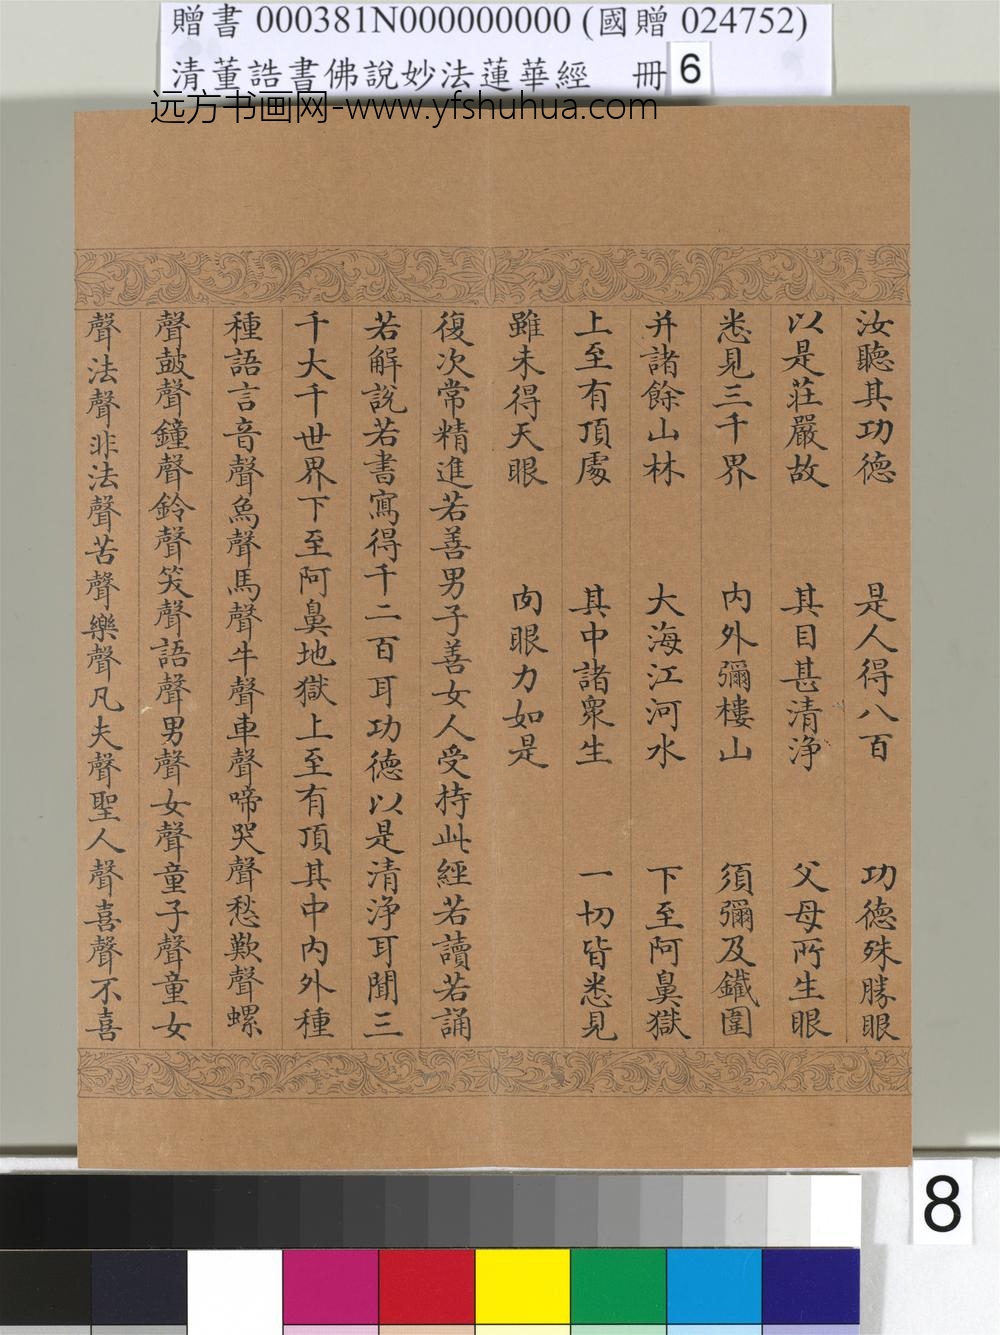 贈書 000381N000000000 (國贈 024752)
清董誥書佛說妙法蓮華經 冊 6
远方书画网-www.yfshuhua.com
汝聽其功德 是人得八百 功德殊勝眼
以是莊嚴故 其目甚清淨 父母所生眼
悉見三千界 內外彌樓山 須彌及鐵圍
并諸餘山林 大海江河水 下至阿鼻獄
上至有頂處 其中諸眾生 一切皆悉見
雖未得天眼 肉眼力如是
復次常精進若善男子善女人受持此經若讀若誦
若解說若書寫得千二百耳功德以是清淨耳聞三
千大千世界下至阿鼻地獄上至有頂其中內外種
種語言音聲象聲馬聲牛聲車聲啼哭聲愁歎聲螺
聲鼓聲鐘聲鈴聲笑聲語聲男聲女聲童子聲童女
聲法聲非法聲苦聲樂聲凡夫聲聖人聲喜聲不喜
8